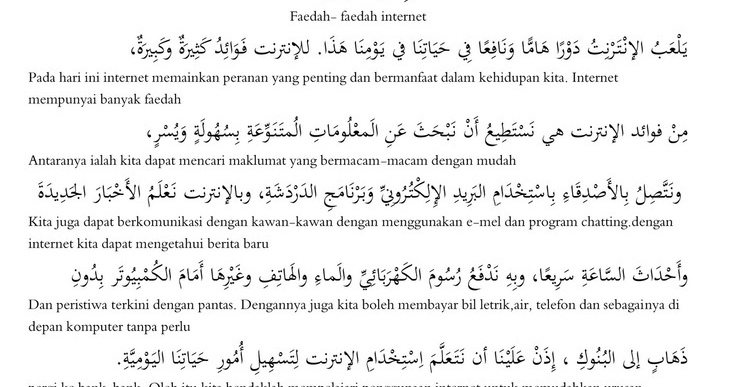 Faedah- faedah internet
يَلْعَبُ الإنْتَرْنِتُ دَوْرًا هَامًّا وَنَافِعًا فِي حَيَاتِنَا فِي يَوْمِنَا هَذَا. للإنترنت فَوَائِدُ كَثِيرَةٌ وَكَبِيرَةٌ،
Pada hari ini internet memainkan peranan yang penting dan bermanfaat dalam kehidupan kita. Internet
mempunyai banyak faedah
مِنْ فوائد الإنترنت هي نَسْتَطِيعُ أَنْ نَبْحَثَ عَنِ الَمعْلُومَاتِ الُمتَنَوِّعَةِ بِسُهُولَةٍ وَيُسْرٍ،
Antaranya ialah kita dapat mencari maklumat yang bermacam-macam dengan mudah
ونَتَّصِلُ بِالأَصْدِقَاءِ بِاسْتِخْدَامِ البَرِيدِ الإِلِكْتُرُونِيِّ وَبَرْنَامَجِ الدَرْدَشَةِ، وبالإنترنت نَعْلَمُ الأَخْبَارَ الجَدِيدَةَ
Kita juga dapat berkomunikasi dengan kawan-kawan dengan menggunakan e-mel dan program chatting.dengan
internet kita dapat mengetahui berita baru
وأَحْدَاثَ السَّاعَةِ سَرِيعًا، وبِهِ نَدْفَعُ رُسُومَ الكَهْرَبَائِيِّ والَماءِ والهَاتِفِ وغَيْرِهَا أَمَامَ الكُمْبِيُوتَر بِدُونِ
Dan peristiwa terkini dengan pantas. Dengannya juga kita boleh membayar bil letrik,air, telefon dan sebagainya di
depan komputer tanpa perlu
ذَهَابٍ إلى البُنُوكِ ، إِذَنْ عَلَيْنَا أن نَتَعَلَّمَ اِسْتِخْدَامِ الإنترنت لِتَسْهِيلِ أُمُورِ حَيَاتِنَا اليَوْمِيَّةِ.